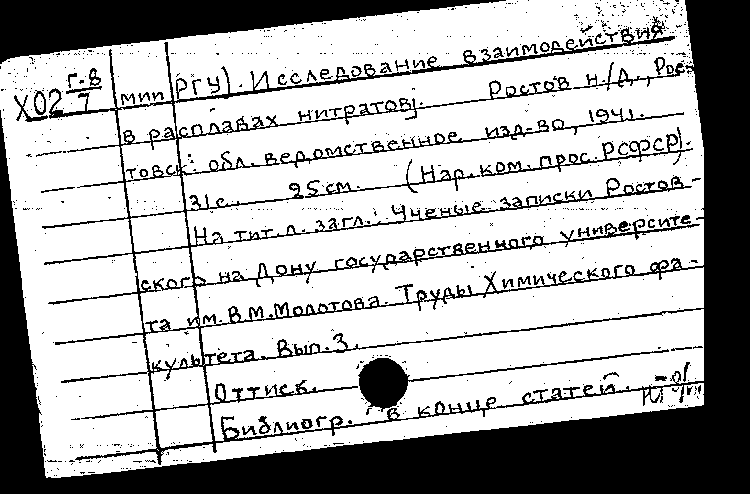 Х02 Г-8/7
мии РГУ). Исследование взаимодействия
в расплавах нитратов). Ростов н/Д., Рос-
товск. обл. ведомственное изд-во, 1941.
31с., 25см. (Нар.ком.прос.РСФСР).
На тит.л. загл.: Ученые записки Ростов-
ского на Дону государственного университе-
та им.В.М.Молотова. Труды Химического фа-
культета. Вып.3.
Оттиск.
Библиогр. в конце статей.